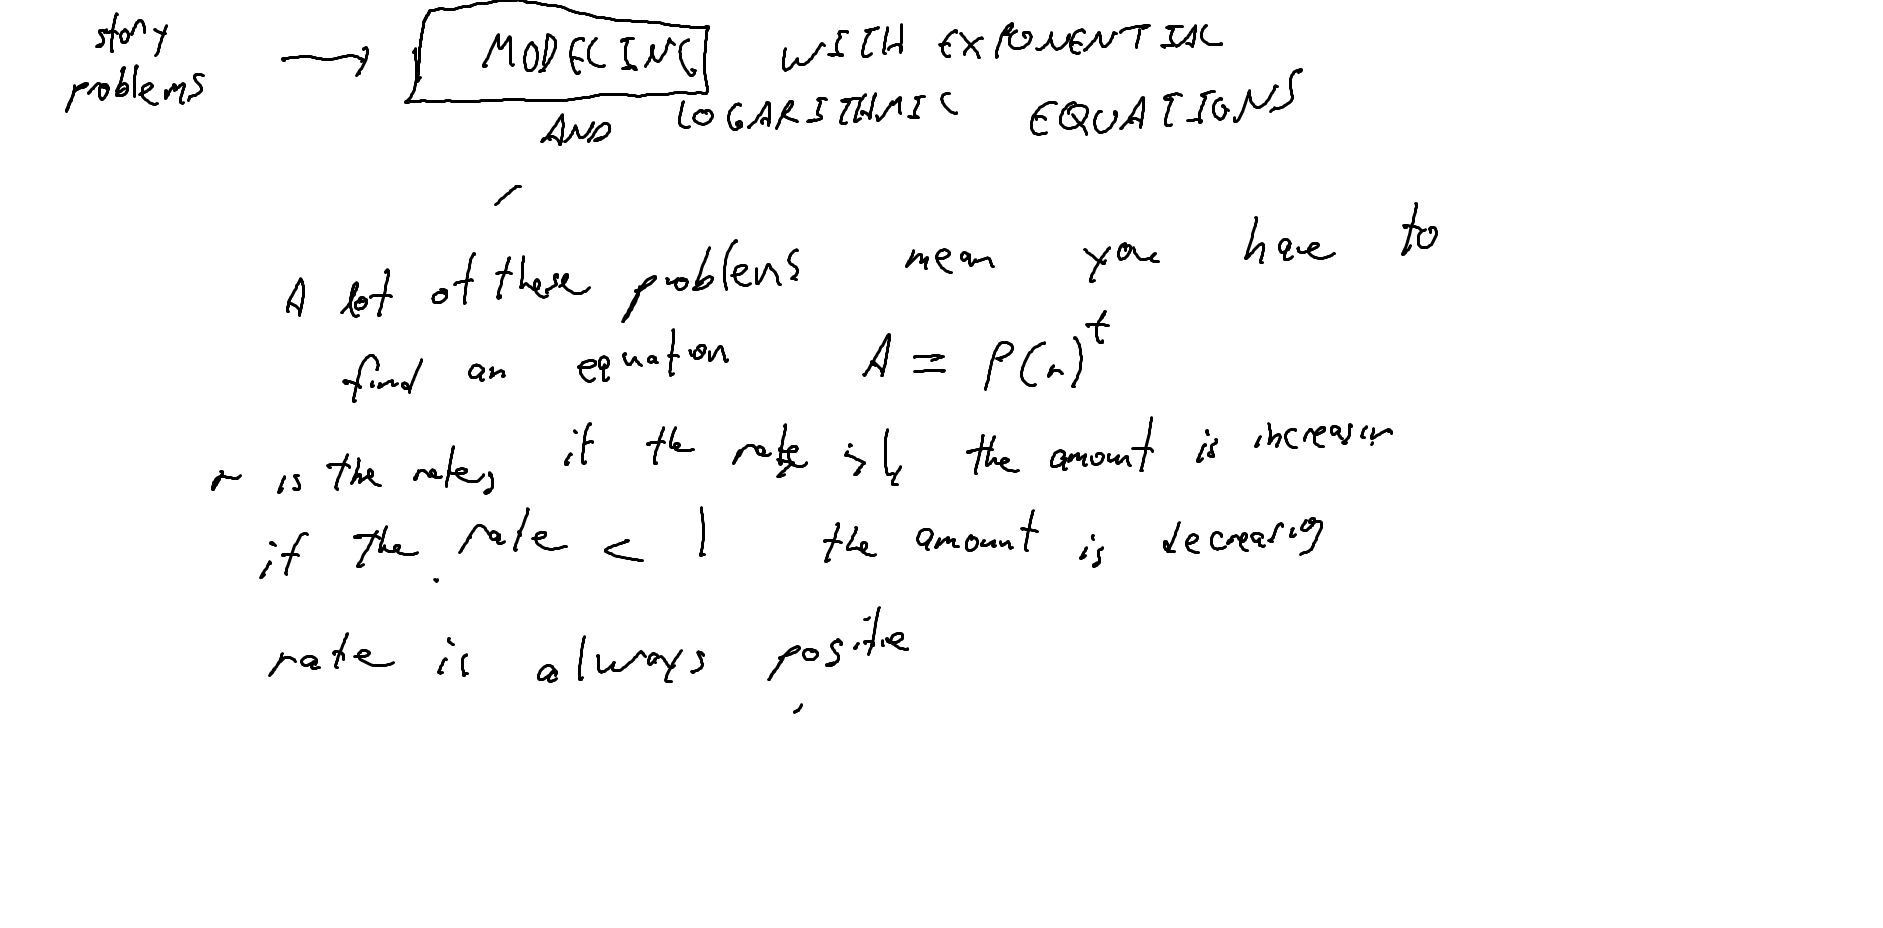 story
problems
MODELING WITH EXPONENTIAL
AND LOGARITHMIC EQUATIONS
A lot of these problems mean you have to
find an equation A = P(r)^t
r is the rate, if the rate is > 1, the amount is increasin
if the rate < 1 the amount is decreasing
rate is always positive